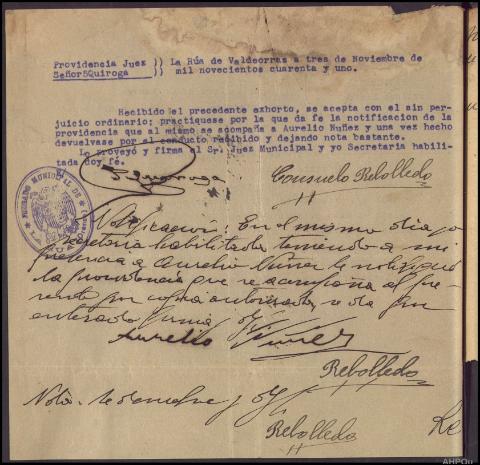 Providencia Juez )) La Rúa de Valdeorras a tres de Noviembre de
Señor5Quiroga )) mil novecientos cuarenta y uno.
Recibido el precedente exhorto, se acepta con el sin per-
juicio ordinario; practiquese por la que da fe la notificacion de la
providencia que al mismo se acompaña a Aurelio Nuñez y una vez hecho
devuelvase por el conducto recibido y dejando nota bastante.
Lo proveyó y firma el Sr. Juez Municipal y yo Secretaria habili-
tada doy fé.
Quiroga
Consuelo Rebolledo
JUZGADO MUNICIPAL DE
Notificación: En el mismo dia yo
Secretaria habilitada teniendo a mi
presencia a Aurelio Nuñez le notifiqué
la providencia que se acompaña al pre-
sente por copia autorizada, y de
enterado firma doy fé
Aurelio Nuñez
Rebolledo
Nota. Se devuelve; doy fé
Rebolledo
Re
AHPOu